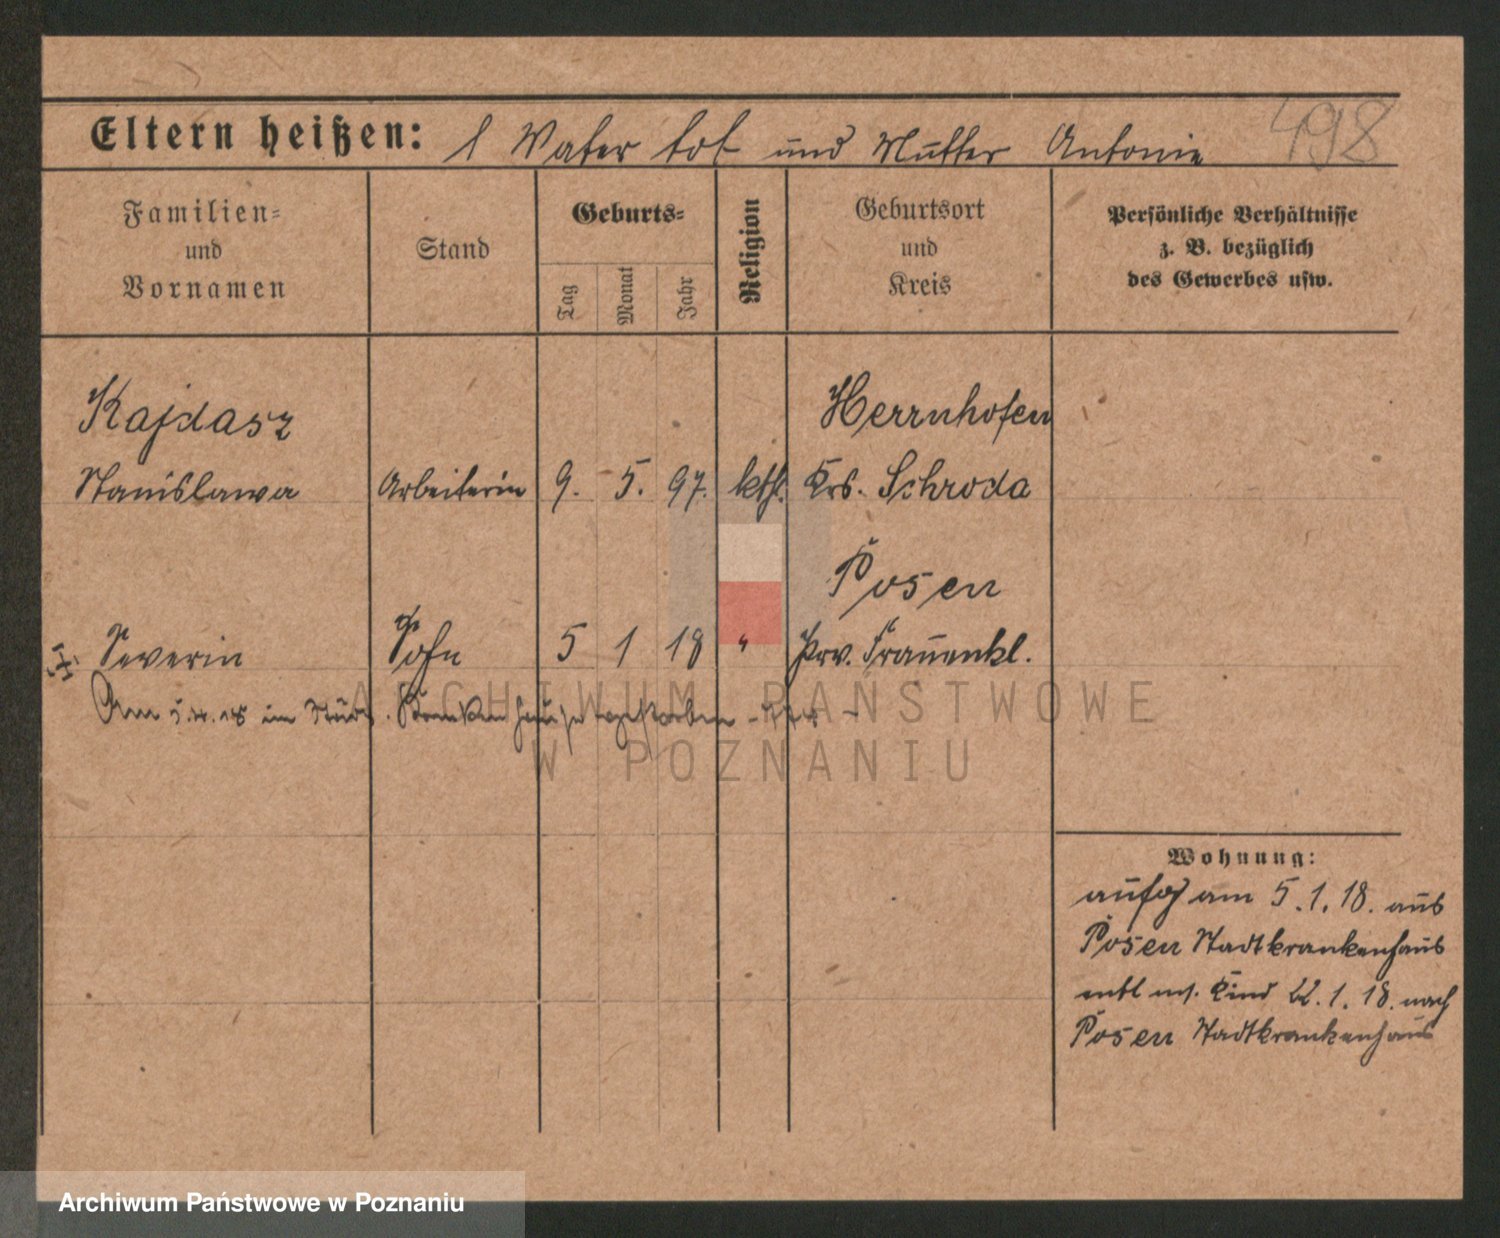 498
Eltern heißen: 1 Vater tot und Mutter Antonie
Familien-
und
Vornamen
Stand
Geburts-
Tag
Monat
Jahr
Religion
Geburtsort
und
Kreis
Persönliche Verhältnisse
z. B. bezüglich
des Gewerbes usw.
Kajdasz
Herrnhofen
Stanislawa Arbeiterin 9. 5. 97. kth. Krs. Schroda
Posen
Severin Sohn 5 1 18 " Prv. Frauenkl.
Am im Städt. Krankenhause
Wohnung:
aufg am 5.1.18. aus
Posen Stadtkrankenhaus
entl mt. Kind 22.1.18. nach
Posen Stadtkrankenhaus
ARCHIWUM PAŃSTWOWE
W POZNANIU
Archiwum Państwowe w Poznaniu